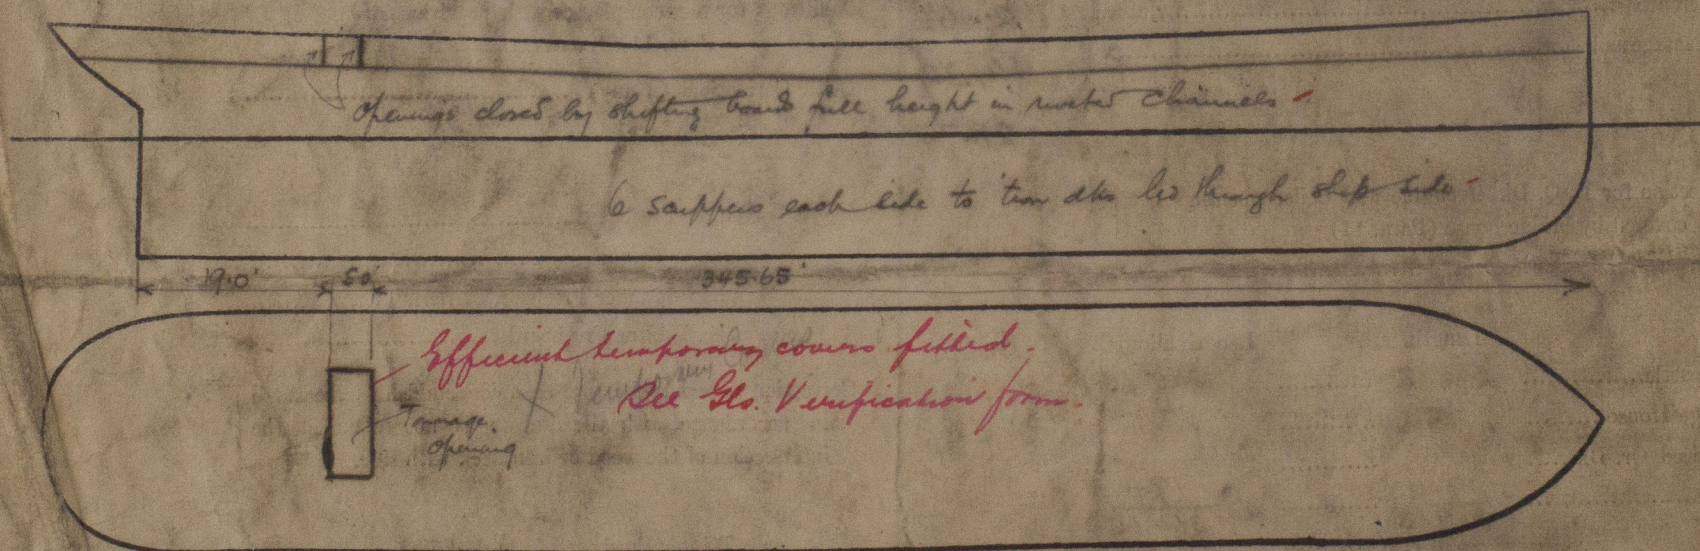 Openings closed by shifting boards full height in riveted channels
6 scuppers each side to 'tween dks led through ship side
19.0' 5.0' 345.65'
Efficient temporary covers fitted.
See Gls. Verification form.
X Temporary
Tonnage.
opening